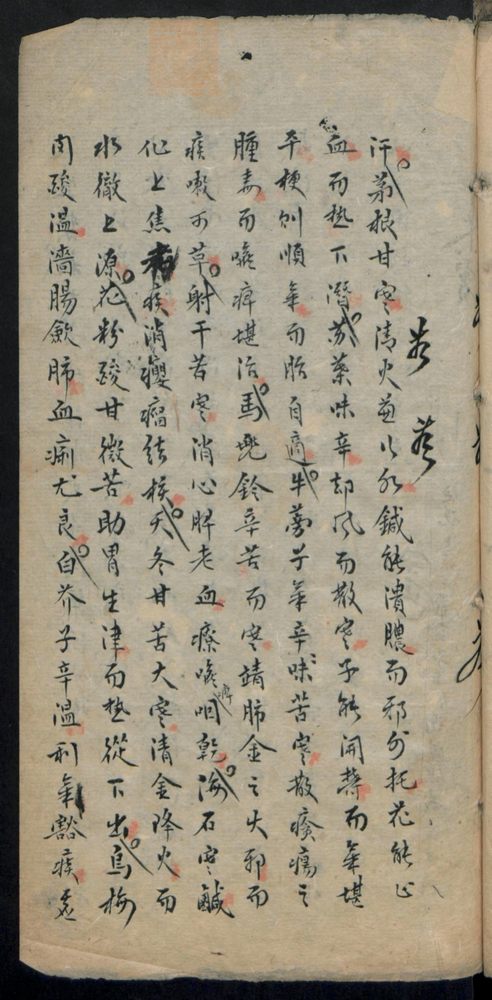 汗茅根甘寒清火益以水鍼能潰膿而邪外托花能止
血而热下潛苏葉味辛却風而散寒子能開鬱而氣堪
平梗则順氣而胎自適牛蒡子氣辛味苦寒散瘡瘍之
腫毒而喉痺堪治馬兜鈴辛苦而寒靖肺金之火邪而
痰嗽可草射干苦寒消心脾老血療喉痺咽乾海石寒鹹
化上焦痰消癭瘤結核天冬甘苦大寒清金降火而
水徹上源花粉酸甘微苦助胃生津而热從下出烏梅
肉酸温濇腸歛肺血痢尤良白芥子辛温利氣豁痰